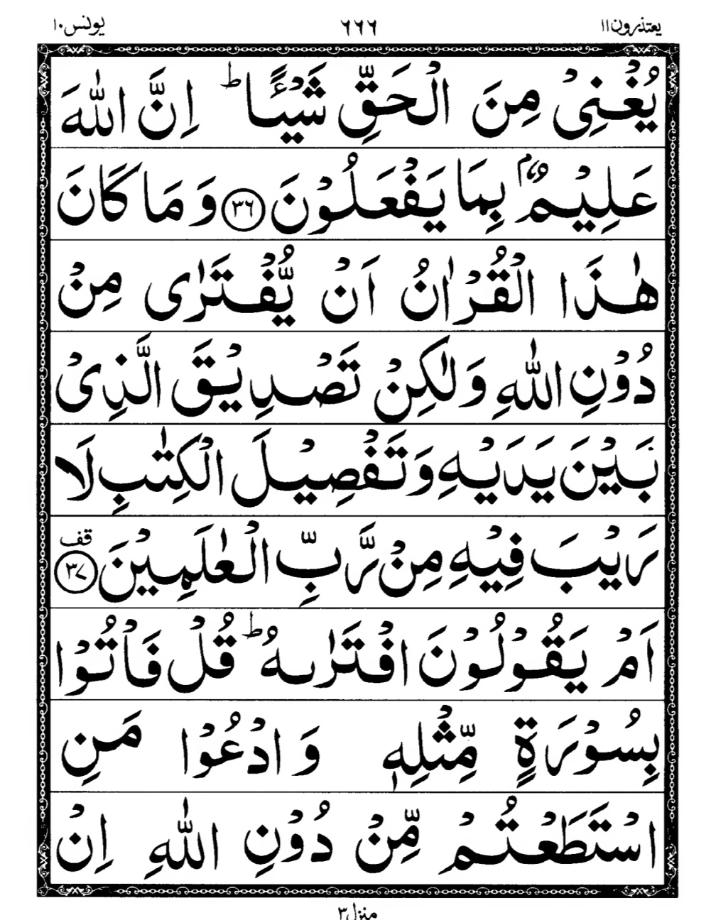 یعتذرون۱۱ ۶۶۶ یونس۱۰
یُغْنِیْ مِنَ الْحَقِّ شَیْـًٔا ؕ اِنَّ اللّٰهَ
عَلِیْمٌۢ بِمَا یَفْعَلُوْنَ ﴿۳۶﴾ وَ مَا كَانَ
هٰذَا الْقُرْاٰنُ اَنْ یُّفْتَرٰی مِنْ
دُوْنِ اللّٰهِ وَ لٰكِنْ تَصْدِیْقَ الَّذِیْ
بَیْنَ یَدَیْهِ وَ تَفْصِیْلَ الْكِتٰبِ لَا
رَیْبَ فِیْهِ مِنْ رَّبِّ الْعٰلَمِیْنَ ﴿۳۷﴾ قف
اَمْ یَقُوْلُوْنَ افْتَرٰىهُ ؕ قُلْ فَاْتُوْا
بِسُوْرَةٍ مِّثْلِهٖ وَ ادْعُوْا مَنِ
اسْتَطَعْتُمْ مِّنْ دُوْنِ اللّٰهِ اِنْ
منزل۳